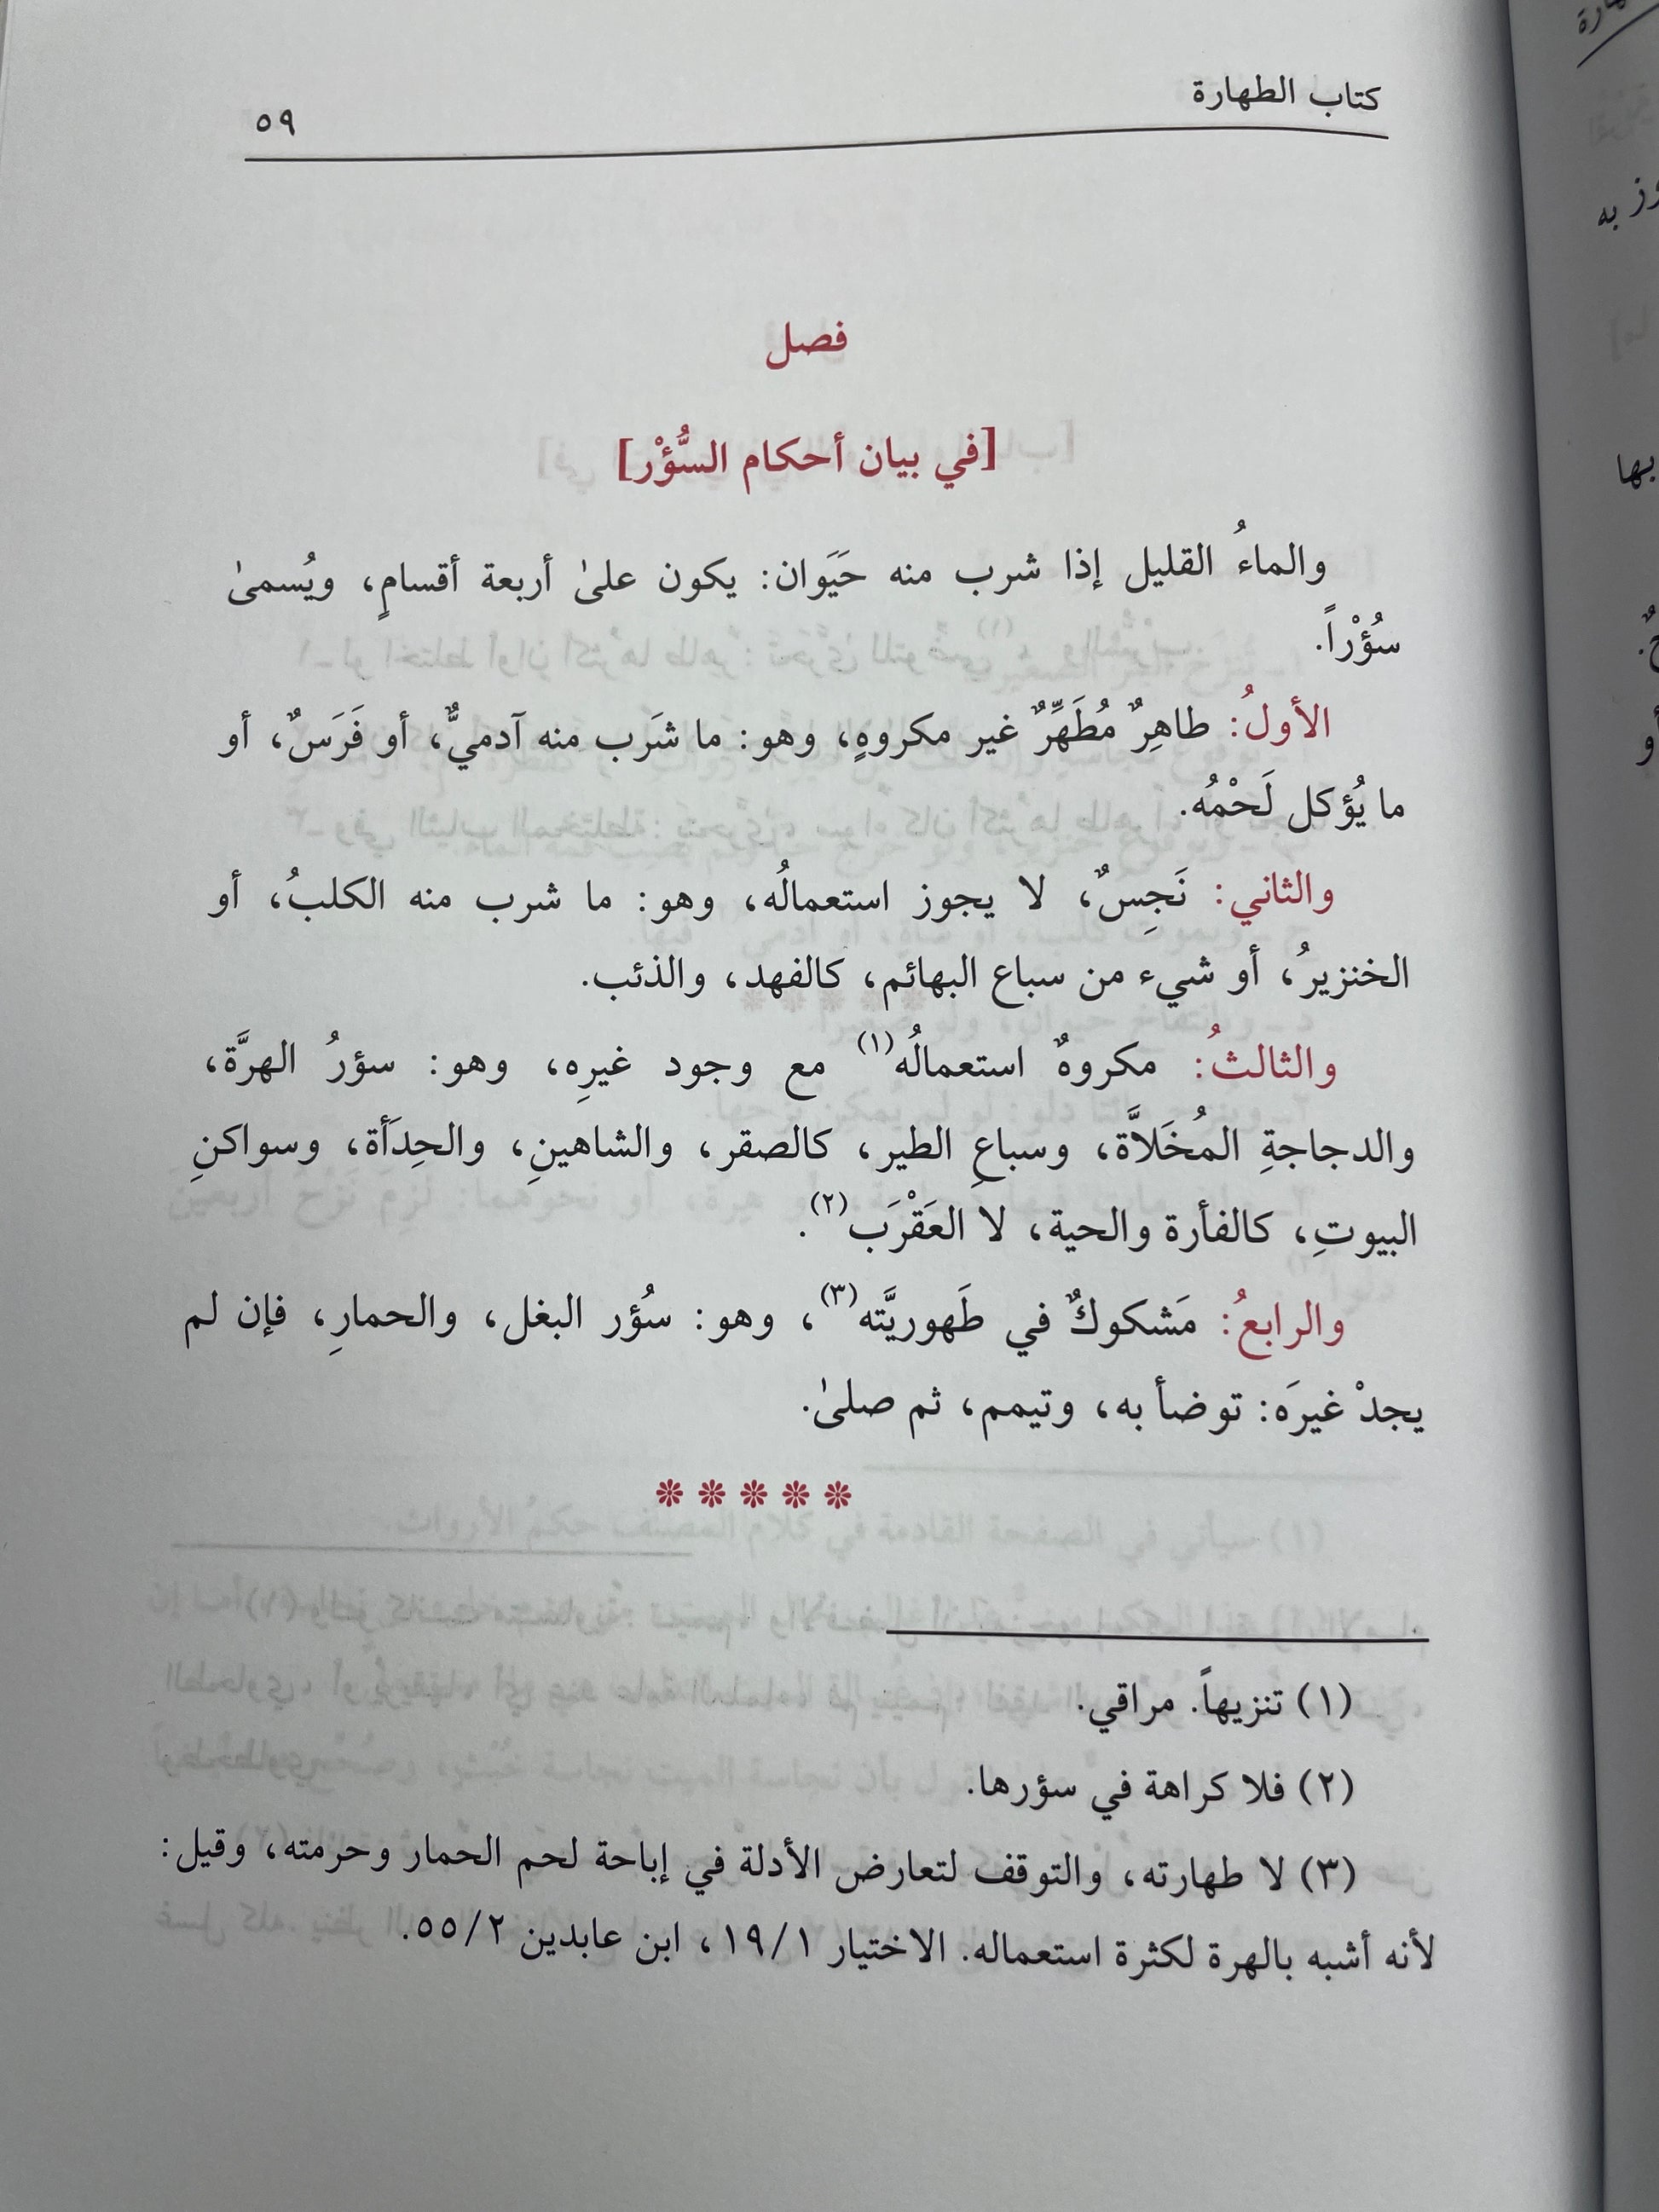 كتاب الطهارة
٥٩
فصل
[في بيان أحكام السُّؤْر]
والماءُ القليل إذا شرب منه حَيَوان: يكون علىٰ أربعة أقسامٍ، ويُسمىٰ
سُؤْراً.
الأولُ: طاهِرٌ مُطَهِّرٌ غير مكروهٍ، وهو: ما شَرَب منه آدميٌّ، أو فَرَسٌ، أو
ما يُؤكل لَحْمُه.
والثاني: نَجِسٌ، لا يجوز استعمالُه، وهو: ما شرب منه الكلبُ، أو
الخنزيرُ، أو شيء من سباع البهائم، كالفهد، والذئب.
والثالثُ: مكروهٌ استعمالُه(١) مع وجود غيرِه، وهو: سؤرُ الهرَّة،
والدجاجةِ المُخَلاَّة، وسباعِ الطير، كالصقر، والشاهينِ، والحِدَأة، وسواكنِ
البيوتِ، كالفأرة والحية، لا العَقْرَب(٢).
والرابعُ: مَشكوكٌ في طَهوريَّته(٣)، وهو: سُؤر البغل، والحمارِ، فإن لم
يجدْ غيرَه: توضأ به، وتيمم، ثم صلىٰ.
(١) تنزيهاً. مراقي.
(٢) فلا كراهة في سؤرها.
(٣) لا طهارته، والتوقف لتعارض الأدلة في إباحة لحم الحمار وحرمته، وقيل:
لأنه أشبه بالهرة لكثرة استعماله. الاختيار ١٩/١، ابن عابدين ٥٥/٢.